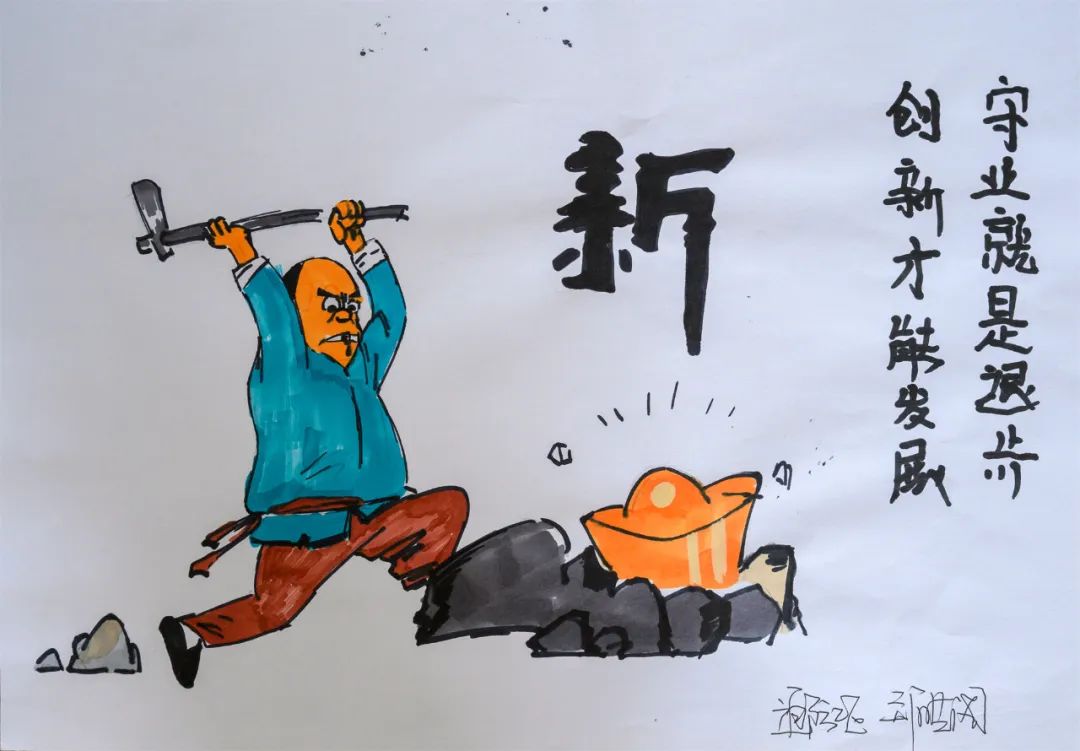 新
守业就是退步
创新才能发展